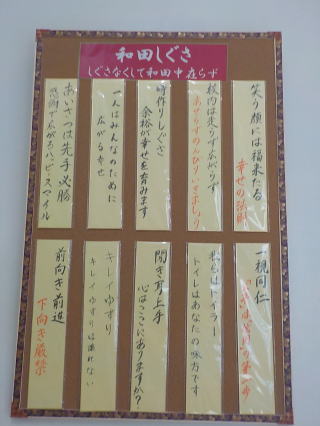 和田しぐさ
しぐさなくして和田中在らず
笑う顔には福来たる
幸せの法則
校内は走らず広がらず
あせらずのんびりいきましょう
時作りしぐさ
余裕が幸せを育みます
一人はみんなのために
広がる幸せ
あいさつは先手必勝
感謝で広がるハッピースマイル
一視同仁
トイレはあなたの味方です
聞き耳上手
心はここにありますか？
キレイゆずり
キレイゆずりは汚れない
前向き前進
下向き厳禁